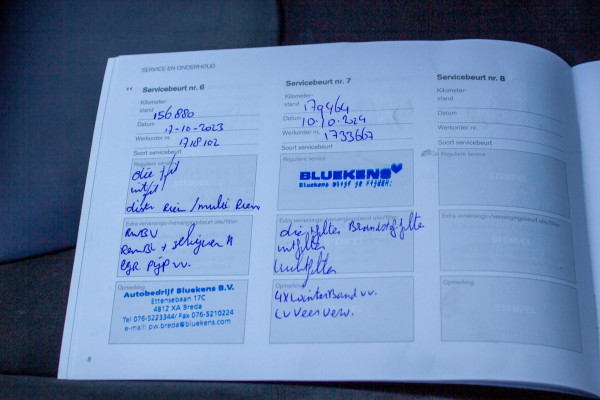 SERVICE EN ONDERHOUD
Servicebeurt nr. 6
Kilometer-
stand 156880
Datum 17-10-2023
Werkorder nr. 1718102
Soort servicebeurt
Reguliere service
olie filt
intfilt
distr Riem / multi Riem
Extra verversings-/vervangingsbeurt olie/filters
RmBV
RemBl + schijven A
EGR pijp vv.
Opmerking
Autobedrijf Bluekens B.V.
Ettensebaan 17C
4812 XA Breda
Tel 076-5223344/ Fax 076-5210224
e-mail: pw.breda@bluekens.com
8
Servicebeurt nr. 7
Kilometer-
stand 179464
Datum 10-10-2024
Werkorder nr. 1733667
Soort servicebeurt
Reguliere service
BLUEKENS
Bluekens blijf je rijden.
Extra verversings-/vervangingsbeurt olie/filters
oliefilter Brandstoffilter
intfilter
luchtfilter
Opmerking
4x winterBand vv.
LV Veer verv.
Servicebeurt nr. 8
Kilometer-
stand
Datum
Werkorder nr.
Soort servicebeurt
Reguliere service
Extra verversings-/vervangingsbeurt olie/filters
Opmerking